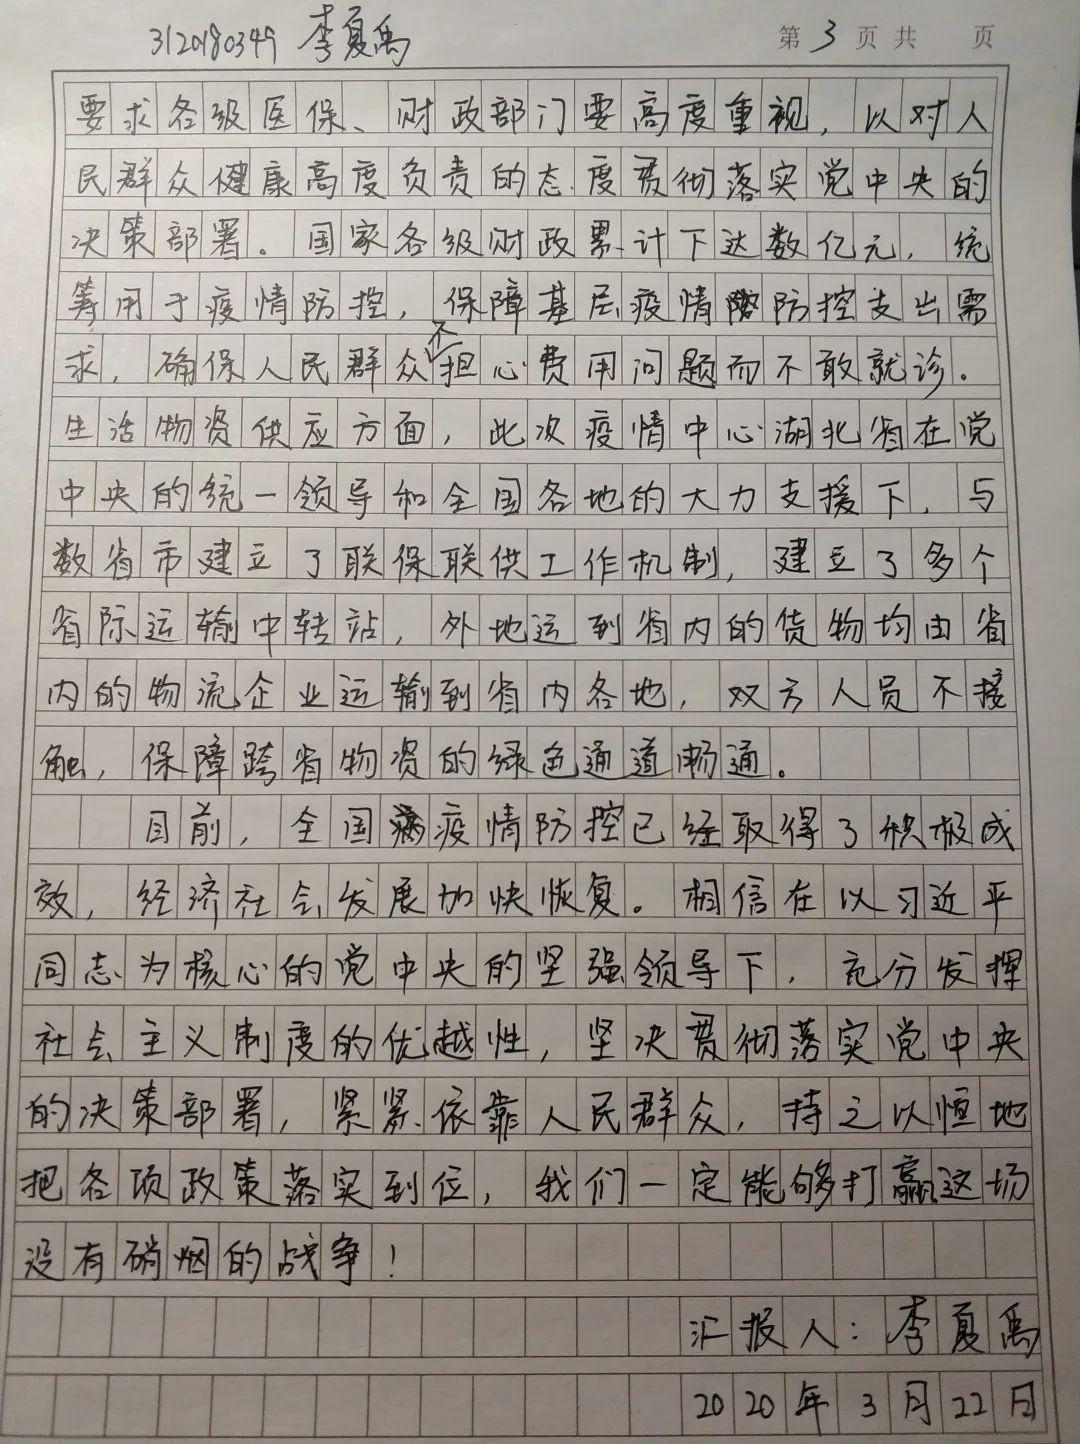 3120180349 李夏禹 第 3 页 共 页
要求各级医保、财政部门要高度重视，以对人
民群众健康高度负责的态度贯彻落实党中央的
决策部署。国家各级财政累计下达数亿元，统
筹用于疫情防控，保障基层疫情防控支出需
求，确保人民群众不担心费用问题而不敢就诊。
生活物资供应方面，此次疫情中心湖北省在党
中央的统一领导和全国各地的大力支援下，与
数省市建立了联保联供工作机制，建立了多个
省际运输中转站，外地运到省内的货物均由省
内的物流企业运输到省内各地，双方人员不接
触，保障跨省物资的绿色通道畅通。
目前，全国疫情防控已经取得了积极成
效，经济社会发展加快恢复。相信在以习近平
同志为核心的党中央的坚强领导下，充分发挥
社会主义制度的优越性，坚决贯彻落实党中央
的决策部署，紧紧依靠人民群众，持之以恒地
把各项政策落实到位，我们一定能够打赢这场
没有硝烟的战争！
汇报人：李夏禹
2020年3月22日